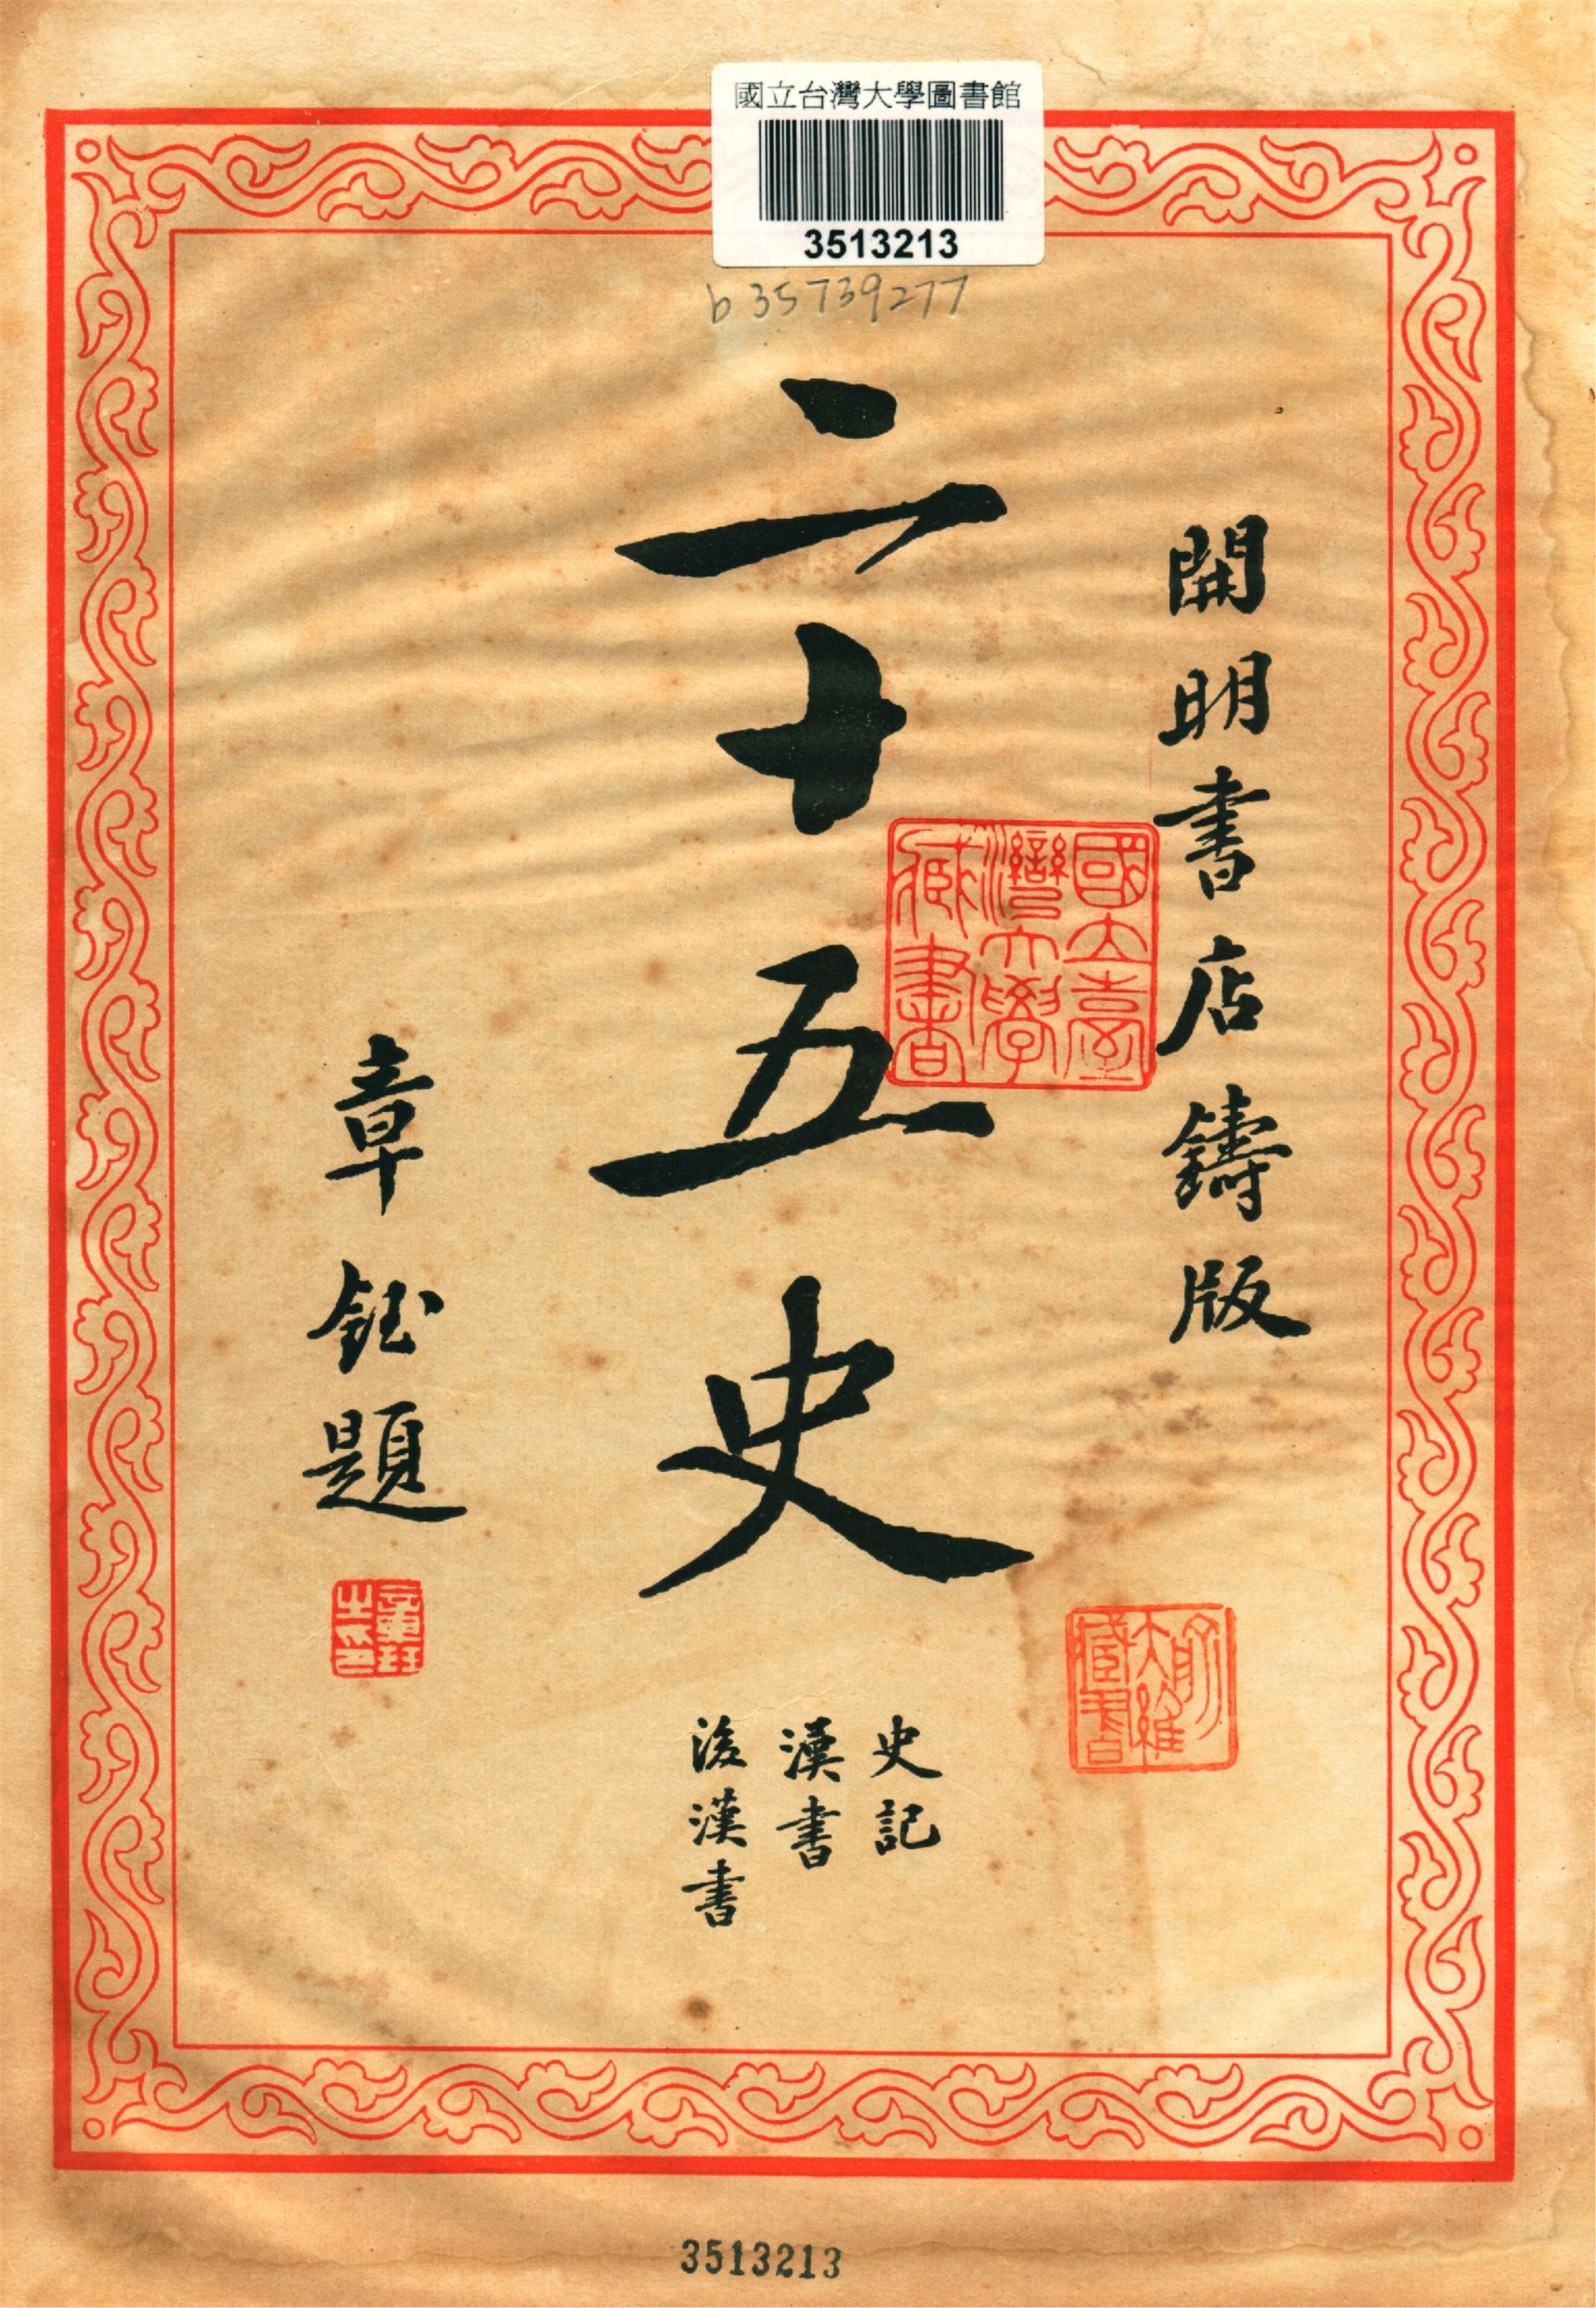 國立台灣大學圖書館
3513213
b35739277
開明書店鑄版
二十五史
史記
漢書
後漢書
章鈺題
章鈺之印
國立臺灣大學藏書
前大維藏書
3513213